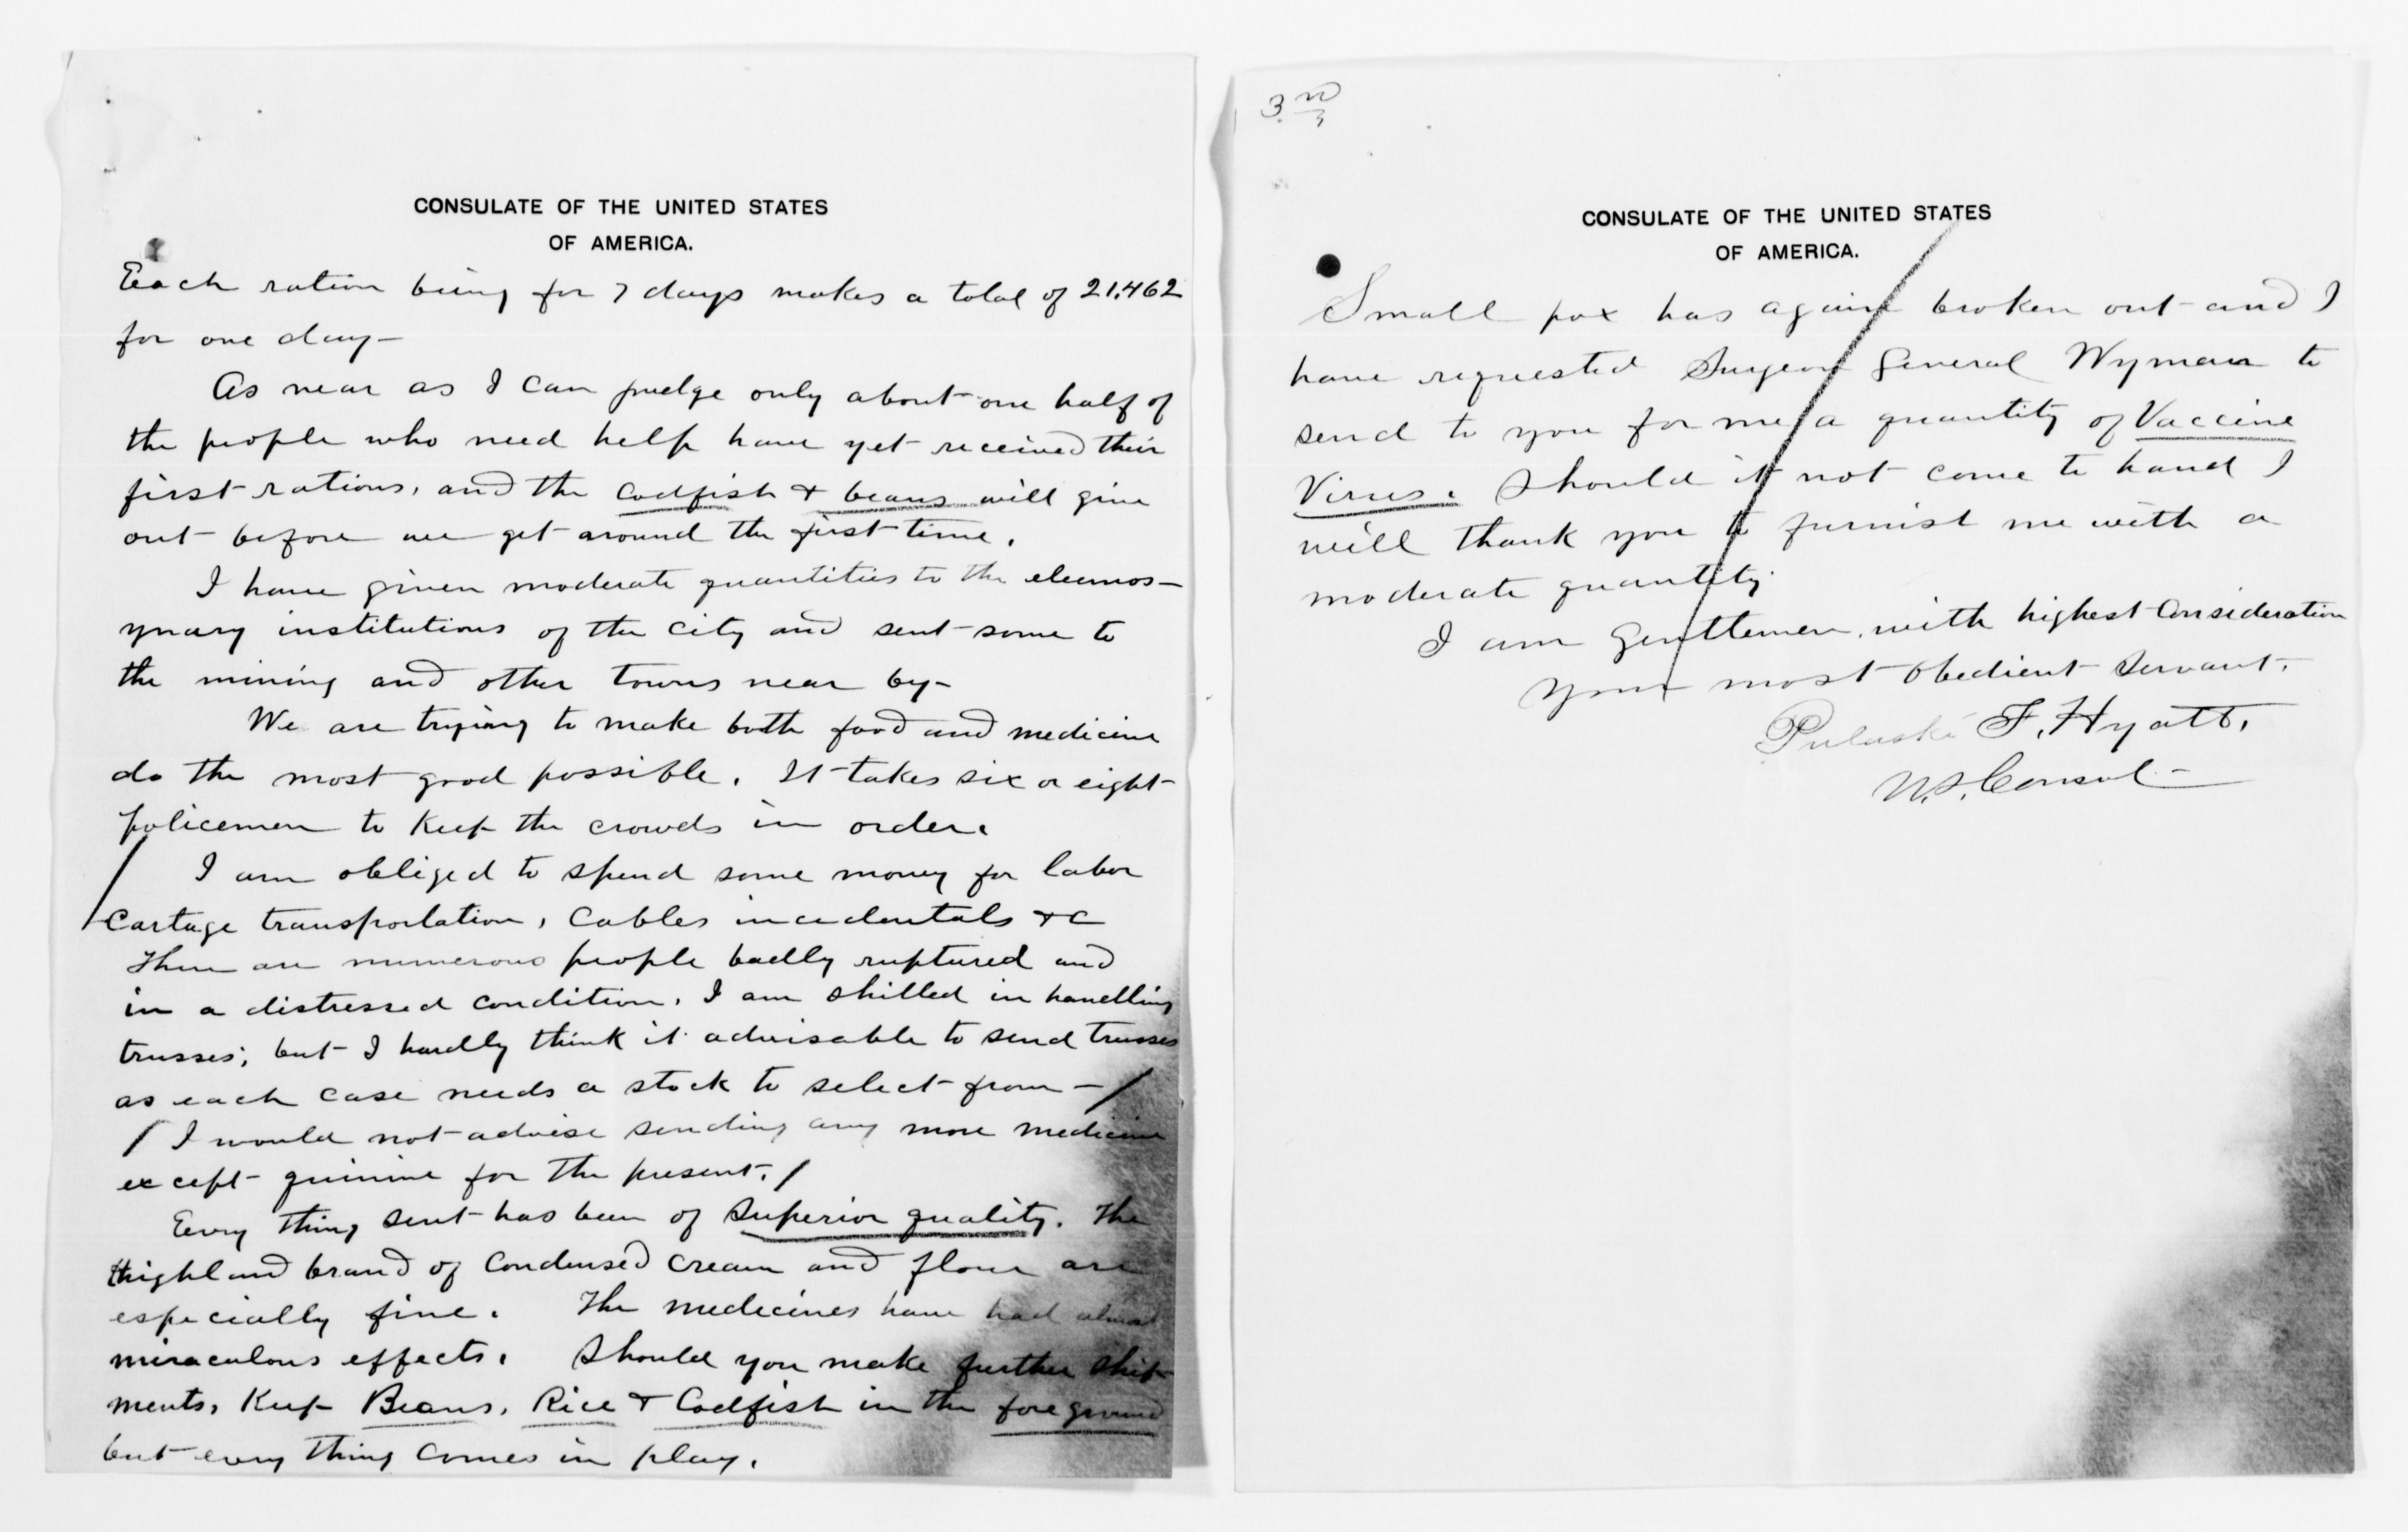 CONSULATE OF THE UNITED STATES
OF AMERICA.
Each ration being for 7 days makes a total of 21,462
for one day—
As near as I can judge only about one half of
the people who need help have yet received their
first rations, and the codfish & beans will give
out before we get around the first time.
I have given moderate quantities to the eleemos—
ynary institutions of the city and sent some to
the mining and other towns near by—
We are trying to make both food and medicine
do the most good possible. It takes six or eight
policemen to keep the crowds in order.
I am obliged to spend some money for labor
Cartage transportation, Cables incidentals &c
There are numerous people badly ruptured and
in a distressed condition. I am skilled in handling
trusses; but I hardly think it advisable to send trusses
as each case needs a stock to select from—/
/ I would not advise sending any more medicine
except quinine for the present. /
Every thing sent has been of superior quality. The
Highland brand of Condensed cream and flour are
especially fine. The medicines have had almost
miraculous effects. Should you make further ship-
ments, Keep Beans, Rice & Codfish in the fore ground
but every thing comes in play.
3rd
CONSULATE OF THE UNITED STATES
OF AMERICA.
Small pox has again broken out and I
have requested Surgeon General Wyman to
send to you for me a quantity of Vaccine
Virus. Should it not come to hand I
will thank you to furnish me with a
moderate quantity.
I am Gentlemen, with highest Consideration
Your most obedient servant.
Pulaski F. Hyatt,
U.S. Consul—